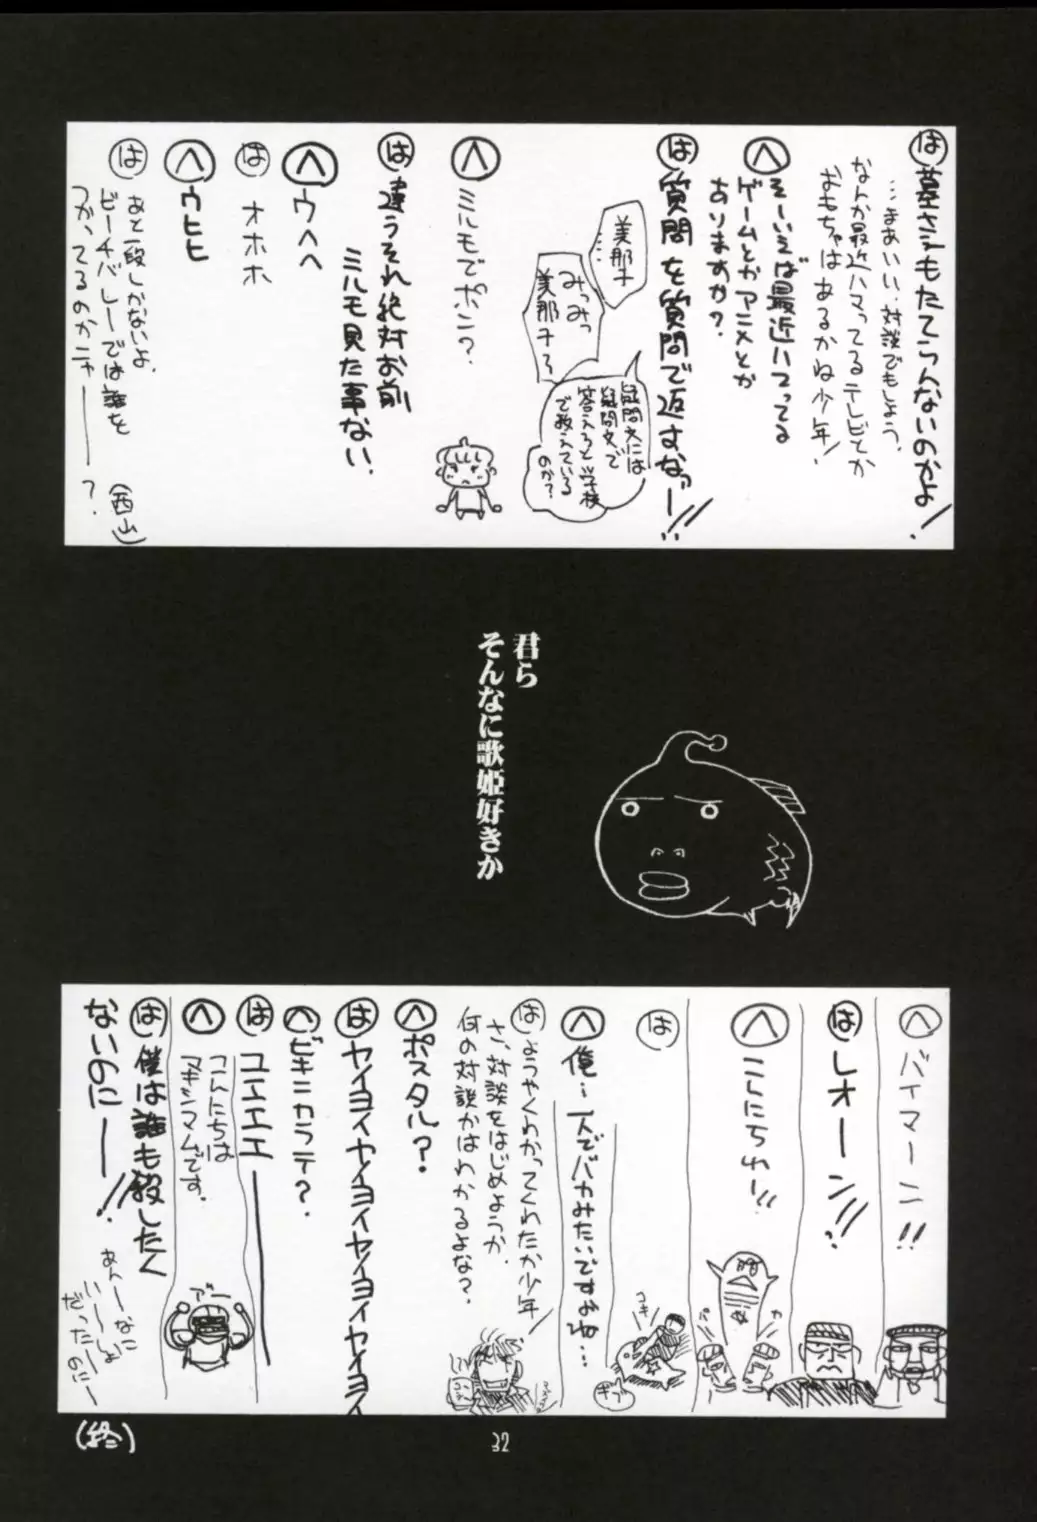 は 墓さえもたてらんないのかよ!
…まあいい、対談でもしよう、
なんか最近ハマってるテレビとか
おもちゃはあるかね少年、
へ そーいえば最近ハマってる
ゲームとかアニメとか
ありますか?
は 質問を質問で返すなッー!!
美那子
…
みっみっ
美那子ろ
疑問文には
疑問文で
答えろと学校
で教えている
のか?
へ ミルモでポン?
は 違うそれ絶対お前
ミルモ見た事ない、
へ ウヘヘ
は オホホ
へ ウヒヒ
は あと一段しかないよ、
ビーチバレーでは誰を
つかってるのかニャーーー?
(西山)
君ら
そんなに歌姫好きか
へ バイマーン!!
は レオーン!!
へ こんにちわー!!
は
コキ
ギャ
へ 俺…一人でバカみたいですよね…
は ようやくわかってくれたか少年!
さ、対談をはじめようか、
何の対談かはわかるよな?、
へ ポスタル?
は ヤイヨイヤイヨイヤイヨイヤイヨイ
へ ビキニカラテ?
は ユエエエーーー
へ こんにちは
マキシマムです。
アー
は 僕は誰も殺したく
ないのにーー!!
あんーなに
いーーしょ
だったーのにー
(終)
32